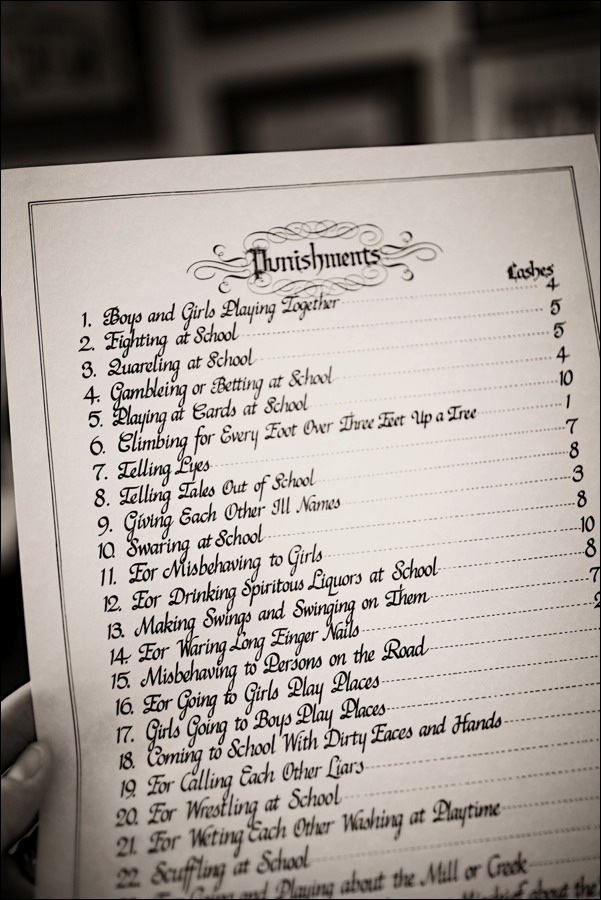 Punishments
Lashes
1. Boys and Girls Playing Together 4
2. Fighting at School 5
3. Quareling at School 5
4. Gambleing or Betting at School 4
5. Playing at Cards at School 10
6. Climbing for Every Foot Over Three Feet Up a Tree 1
7. Telling Lyes 7
8. Telling Tales Out of School 8
9. Giving Each Other Ill Names 3
10. Swaring at School 8
11. For Misbehaving to Girls 10
12. For Drinking Spiritous Liquors at School 8
13. Making Swings and Swinging on Them 7
14. For Waring Long Finger Nails 2
15. Misbehaving to Persons on the Road
16. For Going to Girls Play Places
17. Girls Going to Boys Play Places
18. Coming to School With Dirty Faces and Hands
19. For Calling Each Other Liars
20. For Wrestling at School
21. For Weting Each Other Washing at Playtime
22. Scuffling at School
For Going and Playing about the Mill or Creek
Mischief about the